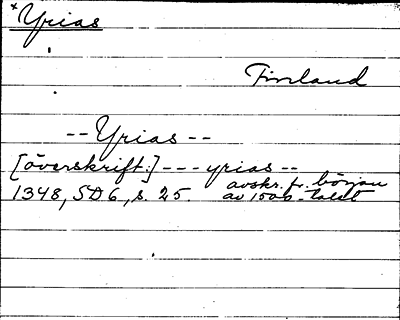 *Yrias
Finland
--Yrias--
[överskrift:] --- yrias --
1348, SD 6, s. 25. avskr. fr. början
av 1500-talet